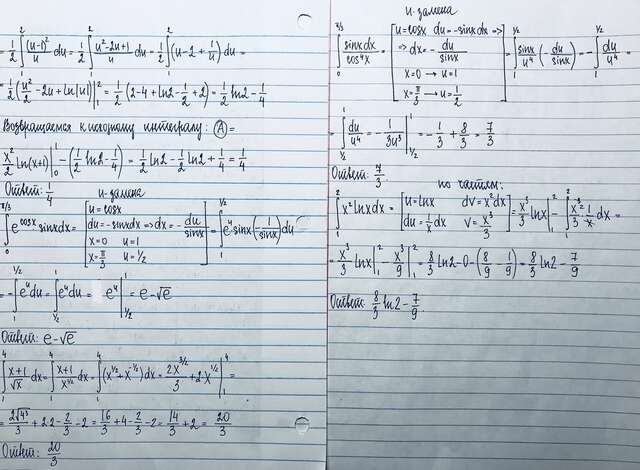 = 1/2 ∫₁² (u-1)²/u du = 1/2 ∫₁² (u²-2u+1)/u du = 1/2 ∫₁² (u-2+1/u) du =
= 1/2 (u²/2 - 2u + ln|u|)|₁² = 1/2 (2-4+ln2-1/2+2) = 1/2 ln2 - 1/4
Возвращаемся к исходному интегралу: Ⓐ =
x²/2 ln(x+1)|₀¹ - (1/2 ln2 - 1/4) = 1/2 ln2 - 1/2 ln2 + 1/4 = 1/4
Ответ: 1/4
u-замена
∫₀^{π/3} e^{cosx} sinxdx = [u=cosx
du=-sinxdx => dx=-du/sinx
x=0 u=1
x=π/3 u=1/2] = ∫₁^{1/2} e^u sinx(-1/sinx)du
= -∫₁^{1/2} e^u du = ∫_{1/2}^1 e^u du = e^u|_{1/2}^1 = e-√e
Ответ: e-√e
∫₁⁴ (x+1)/√x dx = ∫₁⁴ (x+1)/x^{1/2} dx = ∫₁⁴ (x^{1/2}+x^{-1/2})dx = 2x^{3/2}/3 + 2·x^{1/2}|₁⁴ =
= 2√4³/3 + 2·2 - 2/3 - 2 = 16/3 + 4 - 2/3 - 2 = 14/3 + 2 = 20/3
Ответ: 20/3
u-замена
∫₀^{π/3} sinxdx/cos⁴x = [u=cosx du=-sinxdx =>
=> dx=-du/sinx
x=0 → u=1
x=π/3 → u=1/2] = ∫₁^{1/2} sinx/u⁴ (-du/sinx) = -∫₁^{1/2} du/u⁴ =
= ∫_{1/2}^1 du/u⁴ = -1/3u³|_{1/2}^1 = -1/3 + 8/3 = 7/3
Ответ: 7/3.
по частям:
∫₁² x² lnxdx = [u=lnx dv=x²dx
du=1/x dx v=x³/3] = x³/3 lnx|₁² - ∫₁² x³/3 · 1/x dx =
= x³/3 lnx|₁² - x³/9|₁² = 8/3 ln2 - 0 - (8/9 - 1/9) = 8/3 ln2 - 7/9
Ответ: 8/3 ln2 - 7/9.